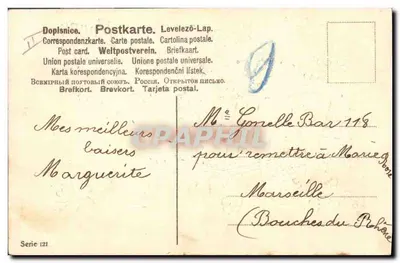 Dopisnice. Postkarte. Levelező-Lap.
Correspondenzkarte. Carte postale. Cartolina postale.
Post card. Weltpostverein. Briefkaart.
Union postale universelle. Unione postale universale.
Karta korespondencyjna. Korespondenční lístek.
Всемірный почтовый союзъ. Россія. Открытое письмо.
Brefkort. Brevkort. Tarjeta postal.
Mes meilleurs
baisers
Marguerite
M. Gonelle Bar 118
pour remettre à Marie
Marseille
(Bouches du Rhône
CPAPHIL
Serie 121